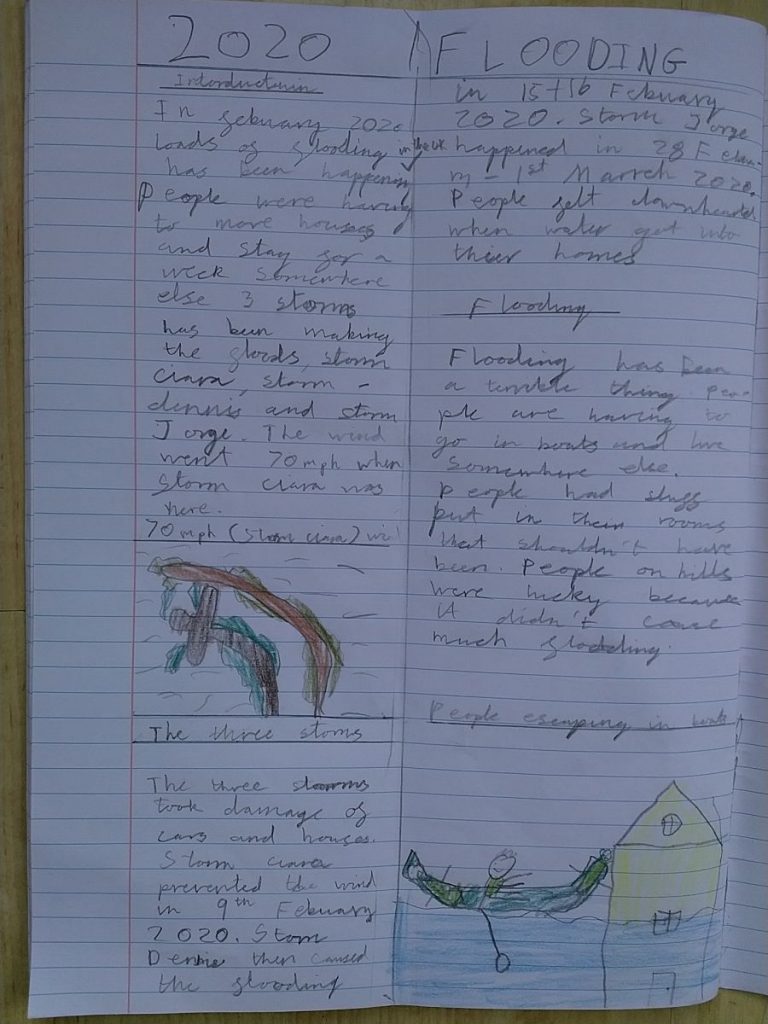 2020 FLOODING
Intorductuin
In febuary 2020
loads of flooding in the uk
has been happening
People were having
to move houses
and stay for a
week somewhere
else 3 storms
has been making
the floods, storm
ciara, storm -
dennis and storm
Jorge. The wind
went 70 mph when
storm ciara was
here.
70 mph (storm ciara)
The three storms
The three storms
took damage of
cars and houses.
Storm ciara
prevented the wind
in 9th Febuary
2020. Storm
Dennis then caused
the flooding
in 15+16 Febuary
2020. Storm Jorge
happened in 28 F
- 1st March 2020.
People felt downhearted
when water got into
their homes
Flooding
Flooding has been
a terrible thing. peo-
ple are having to
go in boats and live
somewhere else.
People had stuff
put in their rooms
that shouldn't have
been. People on hills
were lucky because
it didn't cause
much flodding.
People escaping in boats